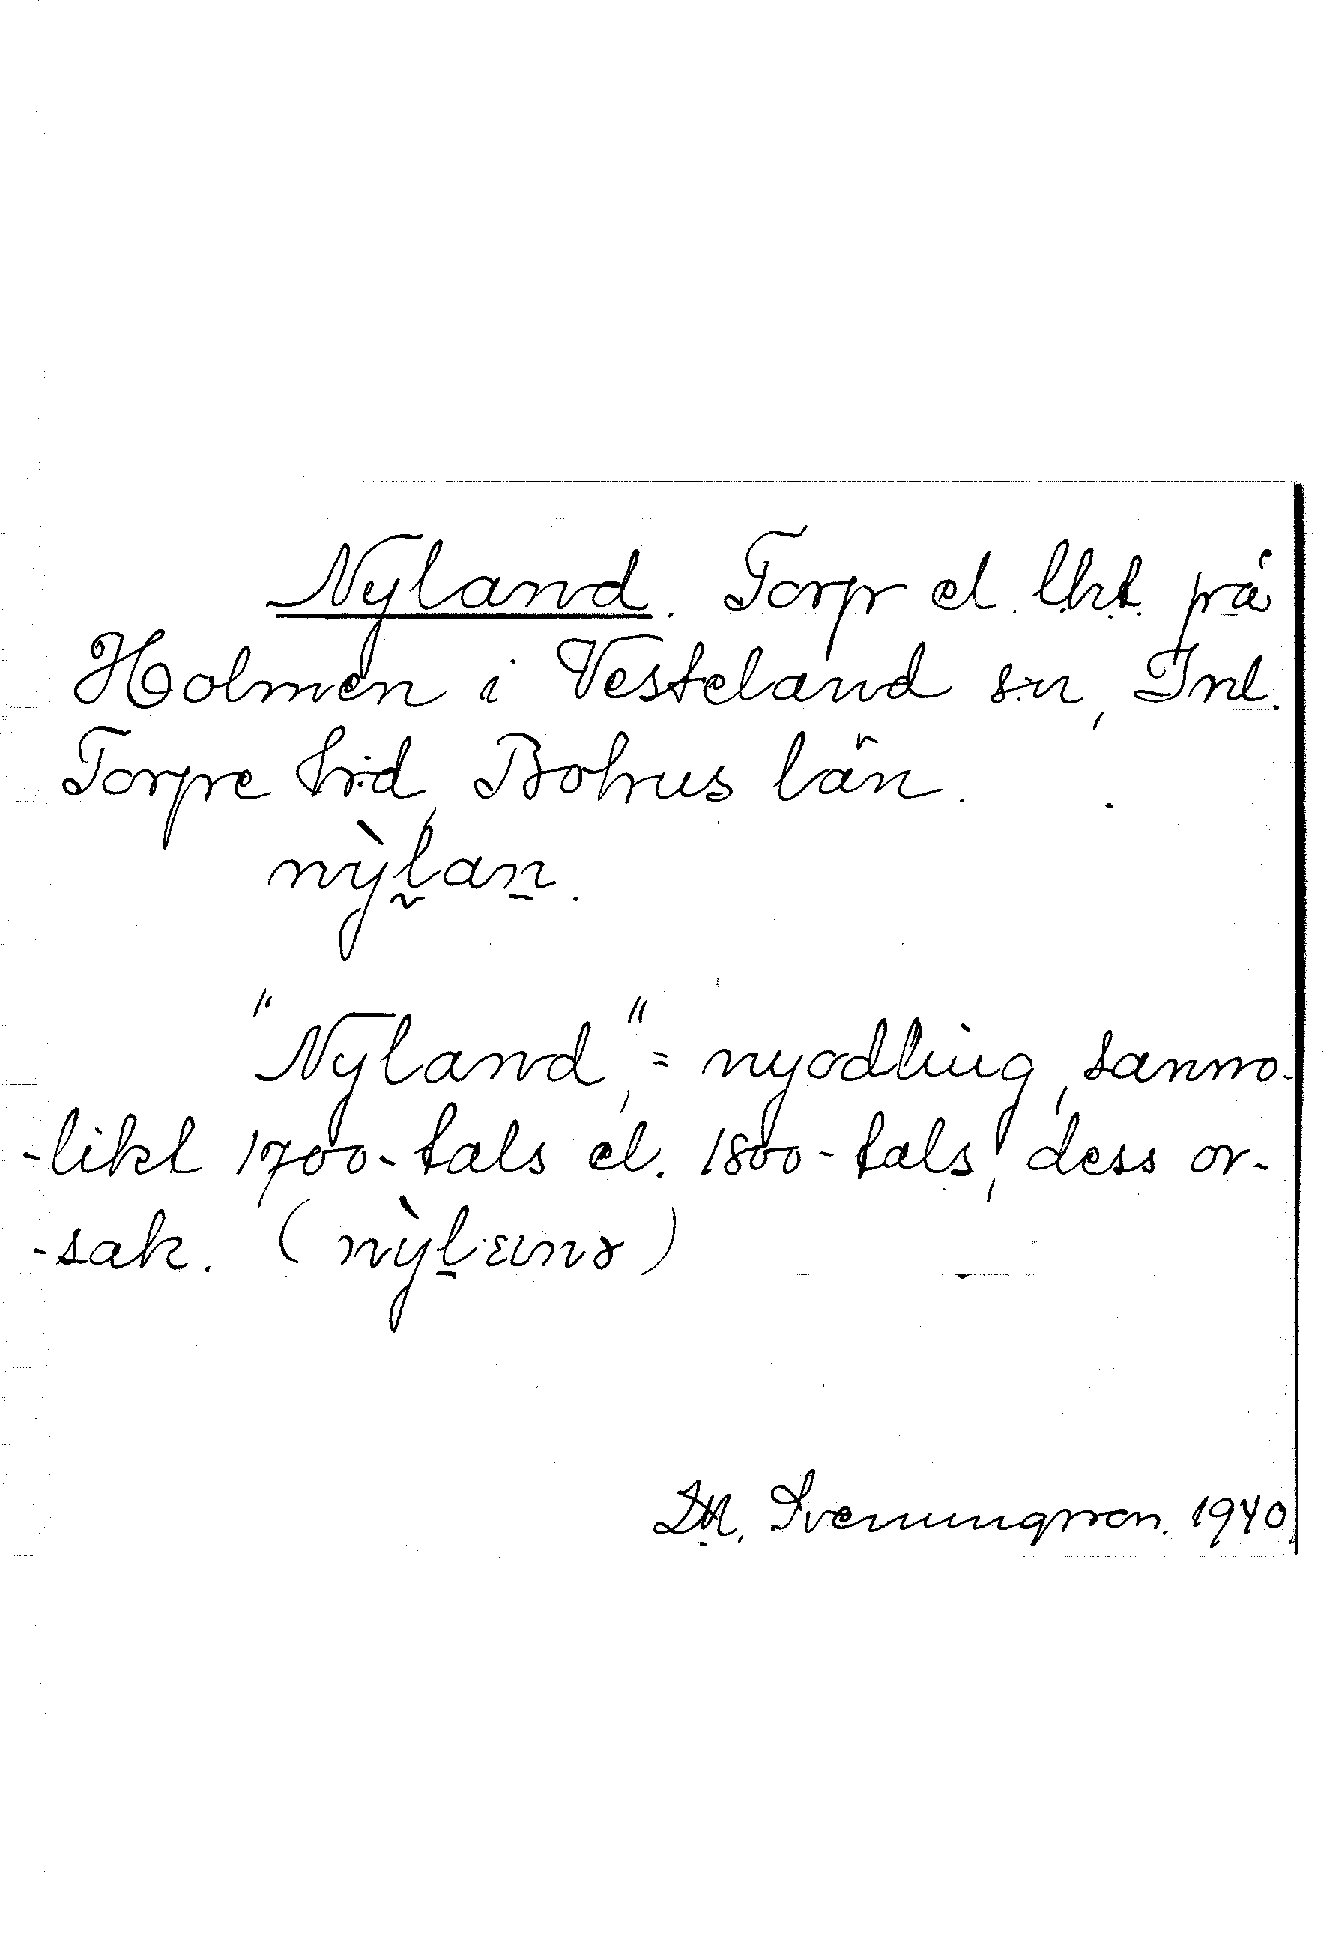 Nyland. Torp el. lht. på
Holmen i Vesteland sn, Inl.
Torpe hrd, Bohus län.
nỳlan.
"Nyland," = nyodling, sanno-
-likt 1700-tals el. 1800-tals, dess or-
-sak. (nỳl
Svenungsson. 1940.